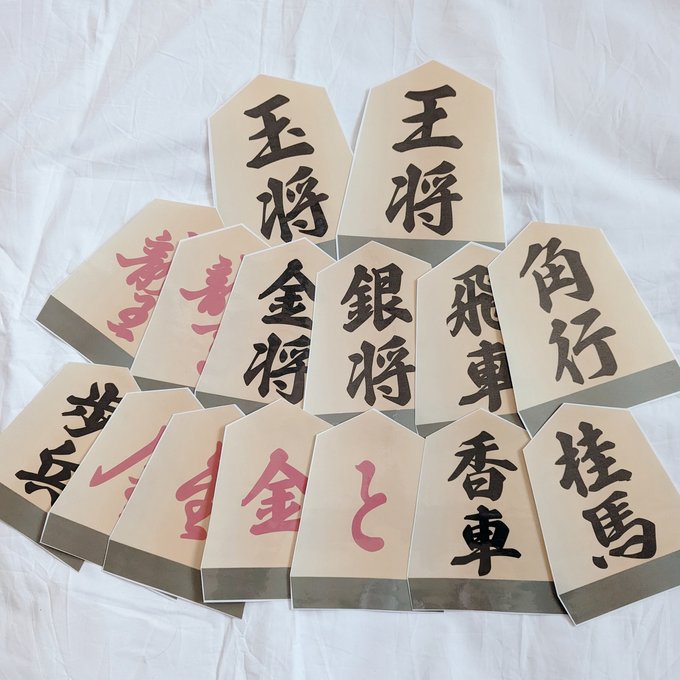 玉将
王将
龍王
龍
金将
銀将
飛車
角行
歩兵
金
と
香車
桂馬